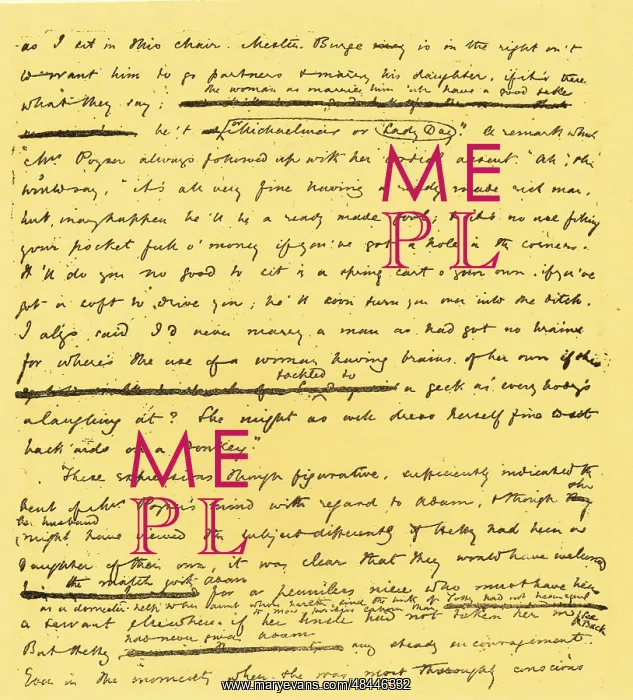 as I sit in this chair. Mester Burge may is in the right on't
to want him to go partners & marry his daughter, if it's true
the woman as marries him 'ull have a good take
what they say;
be't Michaelmas or Lady Day" a remark which
Mrs Poyser always followed up with her cordial assent. "Ah," she
would say, "it's all very fine having a ready made rich man,
but, mayhappen he'll be a ready made fool; & it's no use filling
your pocket full o' money if you've got a hole in the corner.
It'll do you no good to sit in a spring cart o' your own, if you've
got a soft to drive you; he'll soon turn you over into the ditch.
I allys said I'd never marry a man as had got no brains
for where's the use of a woman having brains of her own if she
tackled to
a geck as every body's
a laughing at? She might as well dress herself fine to sit
back'ards on a donkey."
These expressions though figurative, sufficiently indicated the
bent of Mrs Poyser's mind with regard to Adam, & though she
her husband
might have viewed the subject differently if Hetty had been a
daughter of their own, it was clear that they would have welcomed
the match with Adam
for a penniless niece who must have been
a servant elsewhere, if her uncle had not taken her in
See Back
as a domestic help to her aunt whose health since the birth of Totty had not been equal
to more positive labour than
had never given Adam
But Hetty any steady encouragement.
Even in the moments when she was most thoroughly conscious
ME
PL
ME
PL
www.maryevans.com/48446392